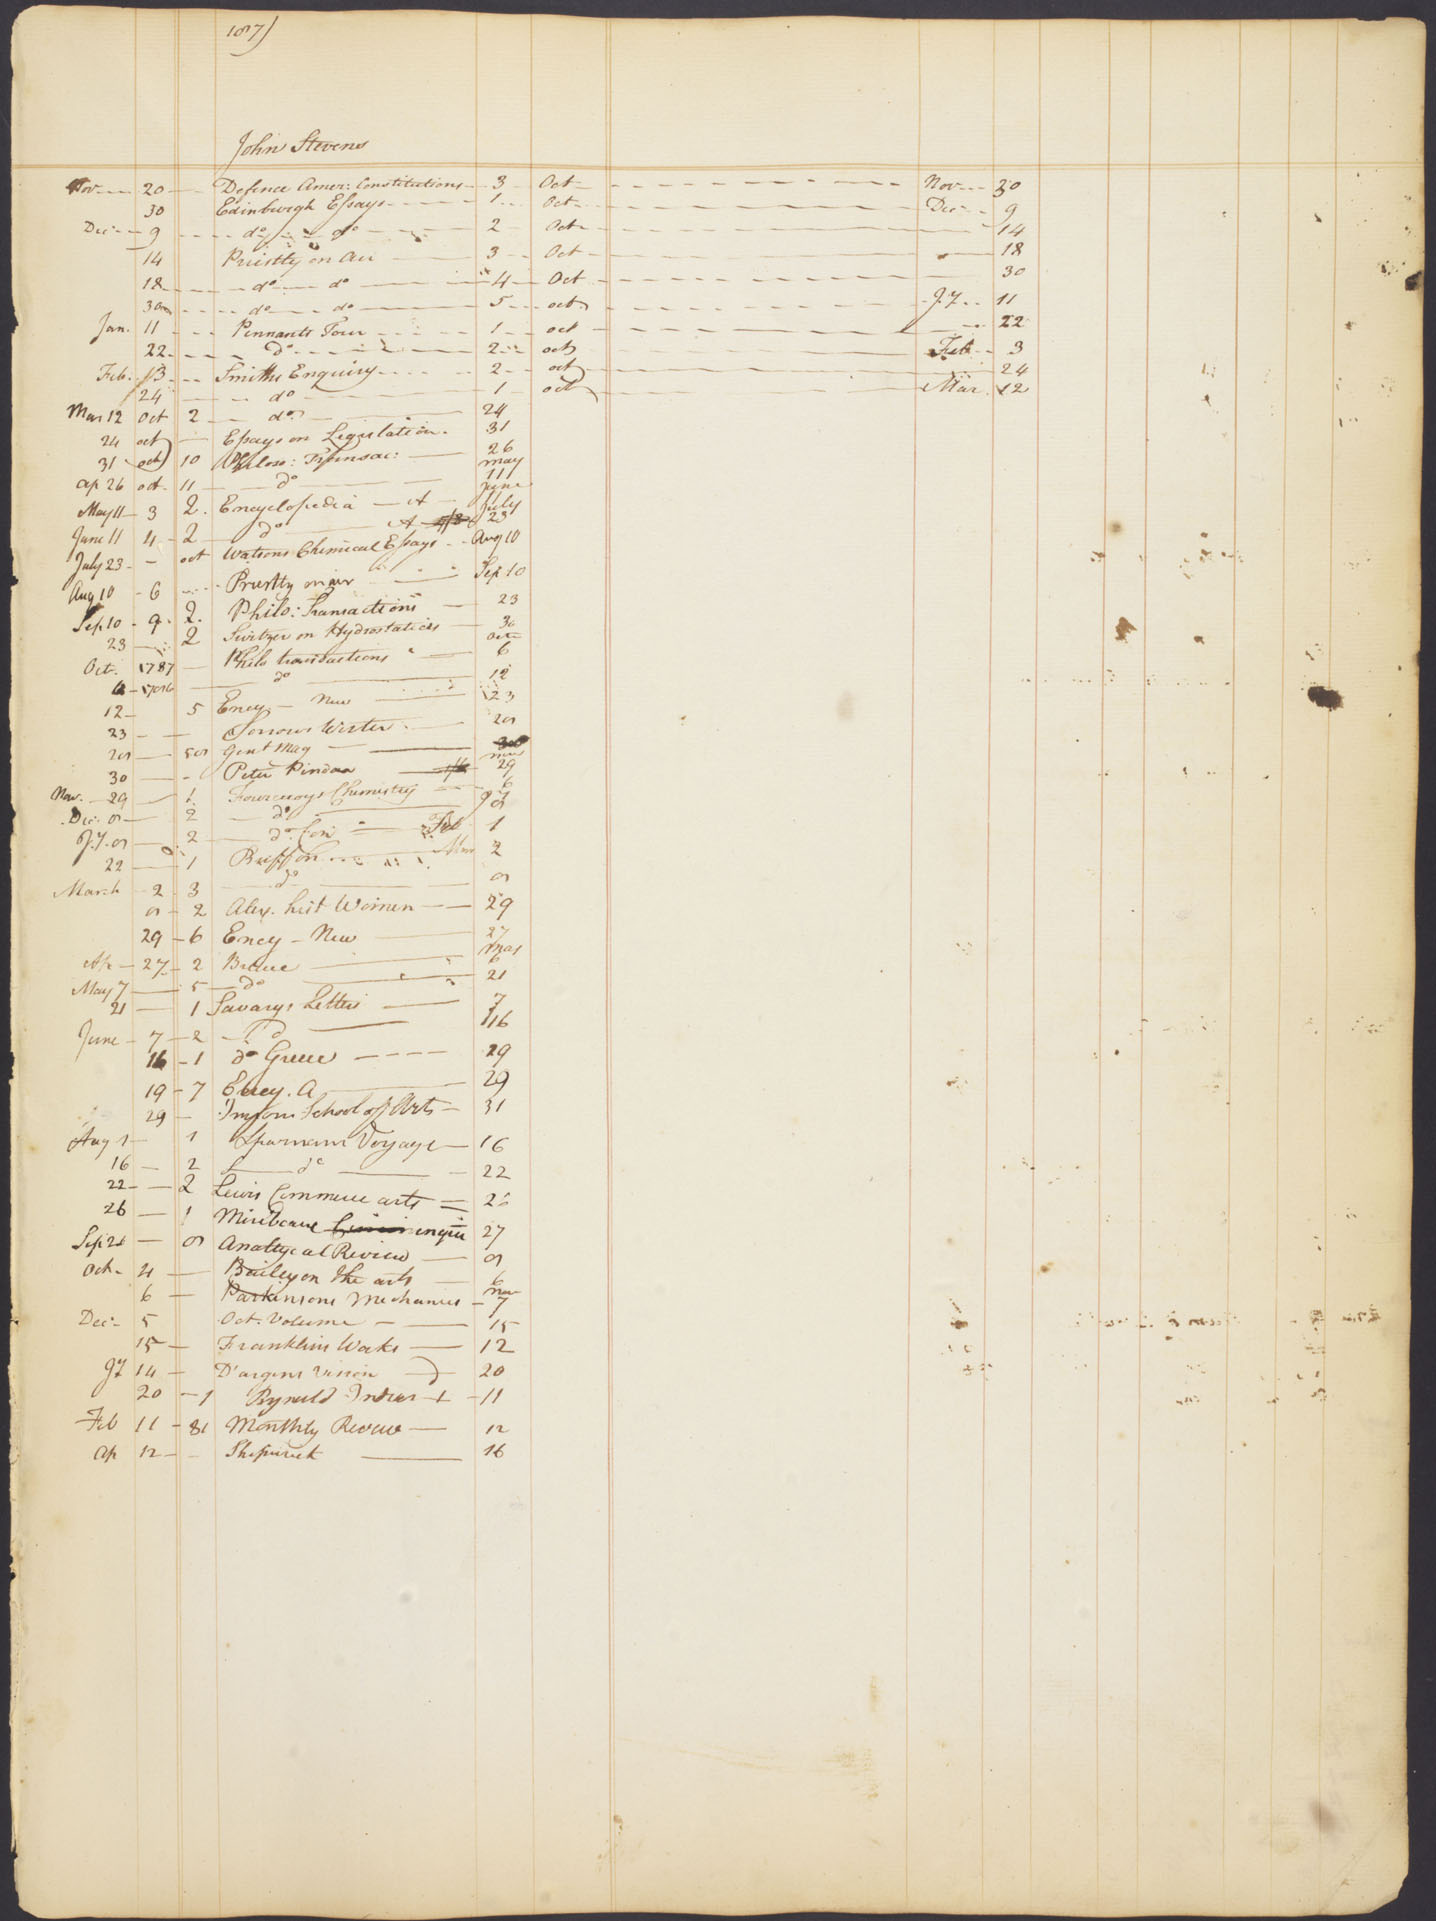 187)
John Stevens
Nov 20 Defence Amer: Constitutions 3 Oct Nov 30
30 Edinburgh Essays 1 Oct Dec 9
Dec 9 do do 2 Oct 14
14 Priestly on Air 3 Oct 18
18 do do 4 Oct 30
30 do do 5 oct J.y 11
Jan. 11 Pennants Tour 1 oct 22
22 do 2 oct Feb 3
Feb. 13 Smiths Enquiry 2 oct 24
24 do 1 oct Mar 12
Mar 12 Oct 2 do 24
24 oct Essays on Legislation. 31
31 oct 10 Philoso: Transac: 26
may
ap 26 oct. 11 do 11
June
May 11 3 2. Encyclopedia A 11
July
June 11 4 2 do A 23
July 23 oct Watsons Chemical Essays Aug 10
Aug 10 6 Priestly on air Sep 10
Sep 10 9 2. Philo: Transactions 23
23 2 Switzer on Hydrostatics 30
Octr
Oct. 1787 Philo transactions 6
6 do 12
12 5 Ency New 23
23 Sorrows Werter 28
28 58 Gent Mag
nov
30 Peter Pindar 29
Nov. 29 1 Fourcroys Chemistry 6
Dec. 8 2 do 8
J.y. 8 2 do Feb 1
22 1 Buffon Mar 2
March 2 3 do 8
8 2 Alex. hist Women 29
29 6 Ency New 27
may
Ap 27 2 Bruce 6
May 7 5 do 21
21 1 Savarys Letters 7
June 7 2 do 16
16 1 do Greece 29
19 7 Ency. A 29
29 Imisons School of Arts 31
Aug 1 1 Sparmans Voyage 16
16 2 do 22
22 2 Lewis Commerce arts 26
26 1 Miribeaue enqui 27
Sep 21 8 Analytical Review 8
Oct. 4 Bailey on the arts 6
nov
6 Parkinsons Mechanics 7
Dec: 5 Oct. Volume 15
15 Franklins Works 12
J.y 14 D'argens Vision 20
20 1 Rynald Indies 11
Feb 11 81 Monthly Review 12
Ap 12 Shipwreck 16